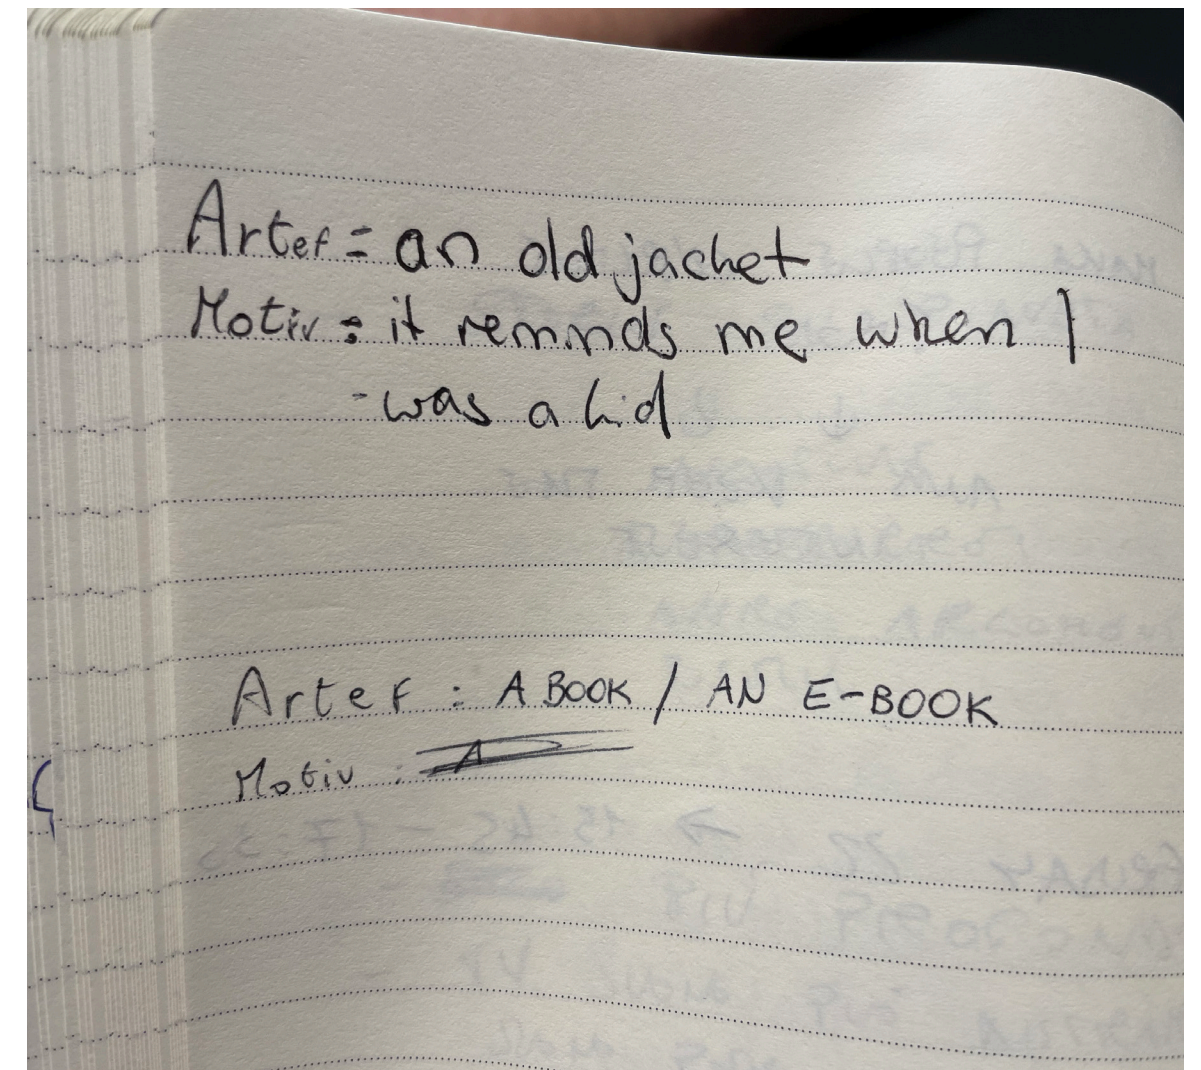 Artef = an old jacket
Motiv : it remnds me when I
- was a kid
Artef : A BOOK / AN E-BOOK
Motiv :